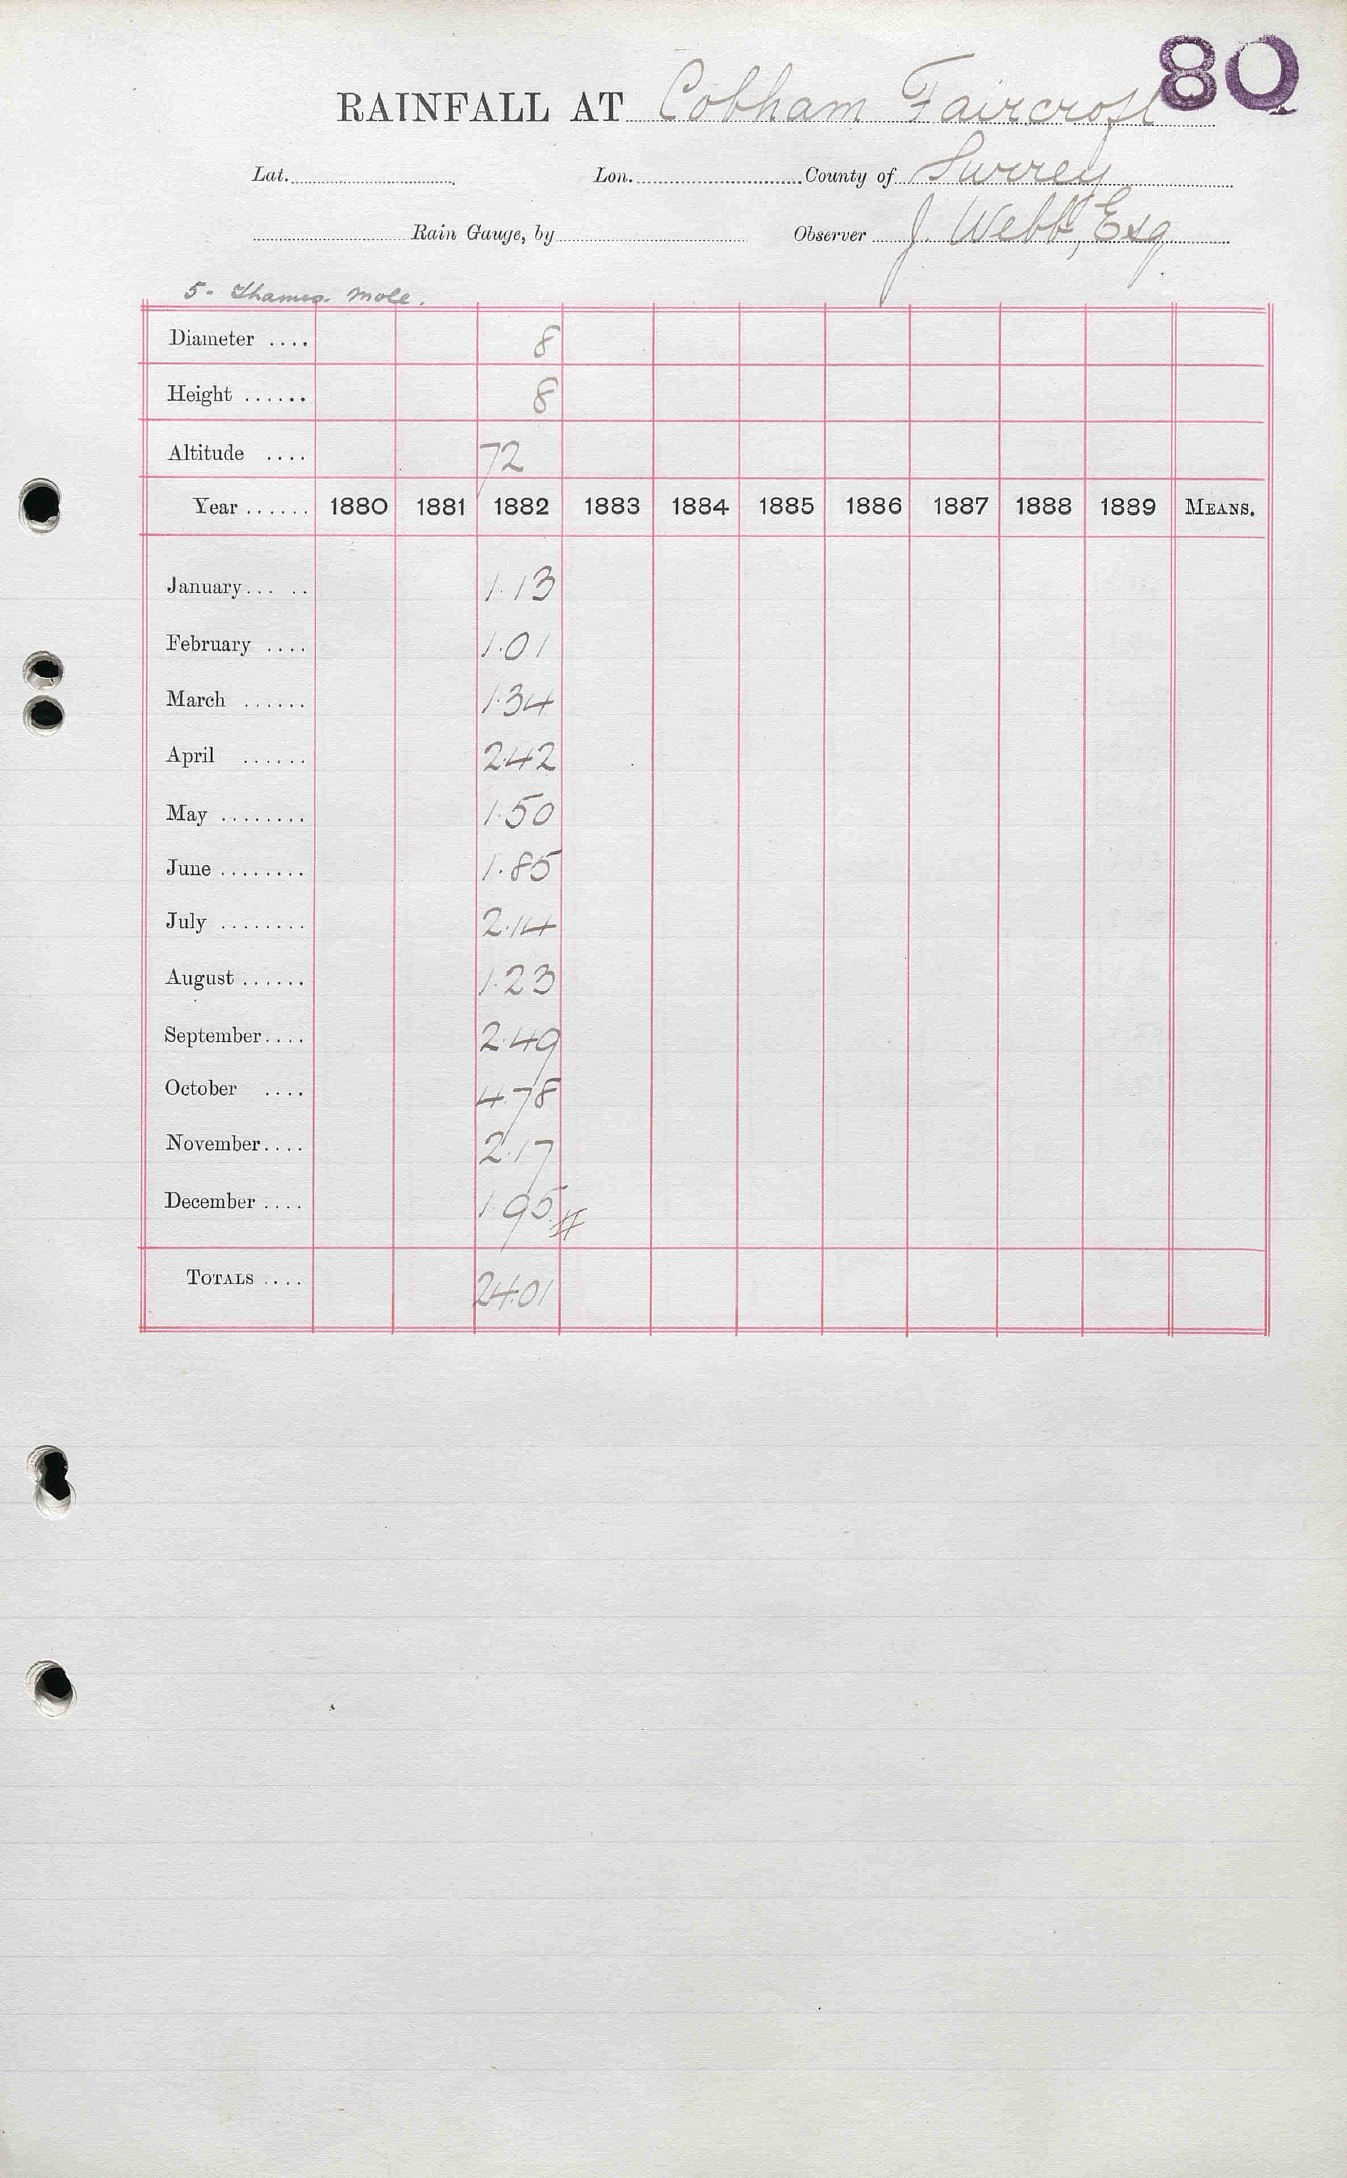 80
RAINFALL AT Cobham Faircroft
Lat. Lon. County of Surrey
Rain Gauge, by Observer J. Webb, Esq
5 - Thames. Mole.
Diameter .... 8
Height ...... 8
Altitude .... 72
Year ...... 1880 1881 1882 1883 1884 1885 1886 1887 1888 1889 MEANS.
January... .. 1.13
February .... 1.01
March ...... 1.34
April ...... 2.42
May ........ 1.50
June ........ 1.85
July ........ 2.14
August ...... 1.23
September.... 2.49
October .... 4.78
November.... 2.17
December .... 1.95 #
TOTALS .... 24.01